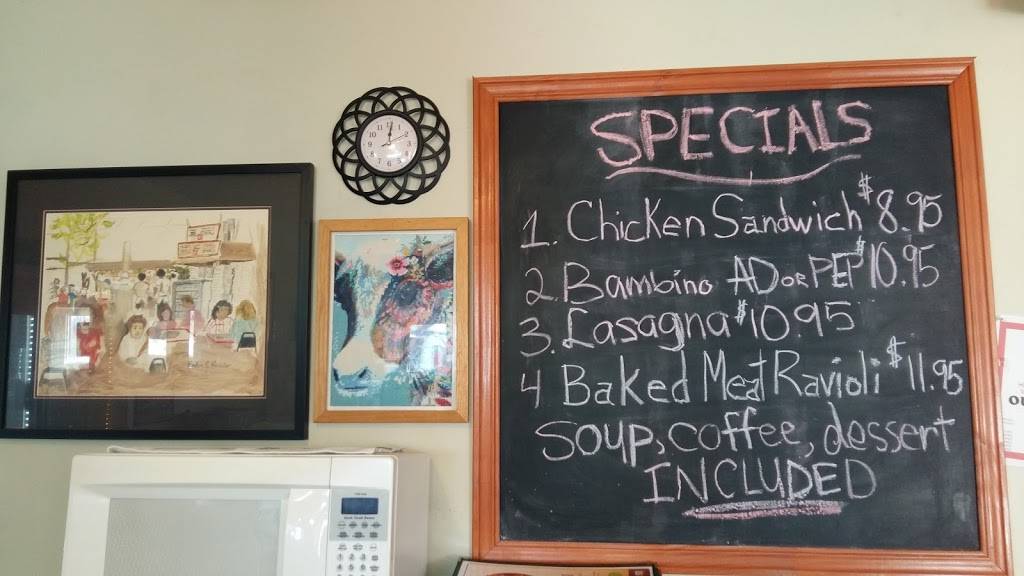 SPECIALS
1. Chicken Sandwich $8.95
2. Bambino AD OR PEP $10.95
3. Lasagna $10.95
4 Baked Meat Ravioli $11.95
Soup, coffee, dessert
INCLUDED